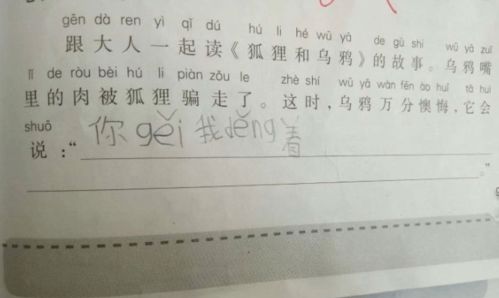 gēn dà ren yì qǐ dú hú li hé wū yā de gù shi wū yā zuǐ
跟大人一起读《狐狸和乌鸦》的故事。乌鸦嘴
lǐ de ròu bèi hú li piàn zǒu le zhè shí wū yā wàn fēn ào huǐ tā huì
里的肉被狐狸骗走了。这时,乌鸦万分懊悔,它会
shuō
说:“你gěi我děng着
。”